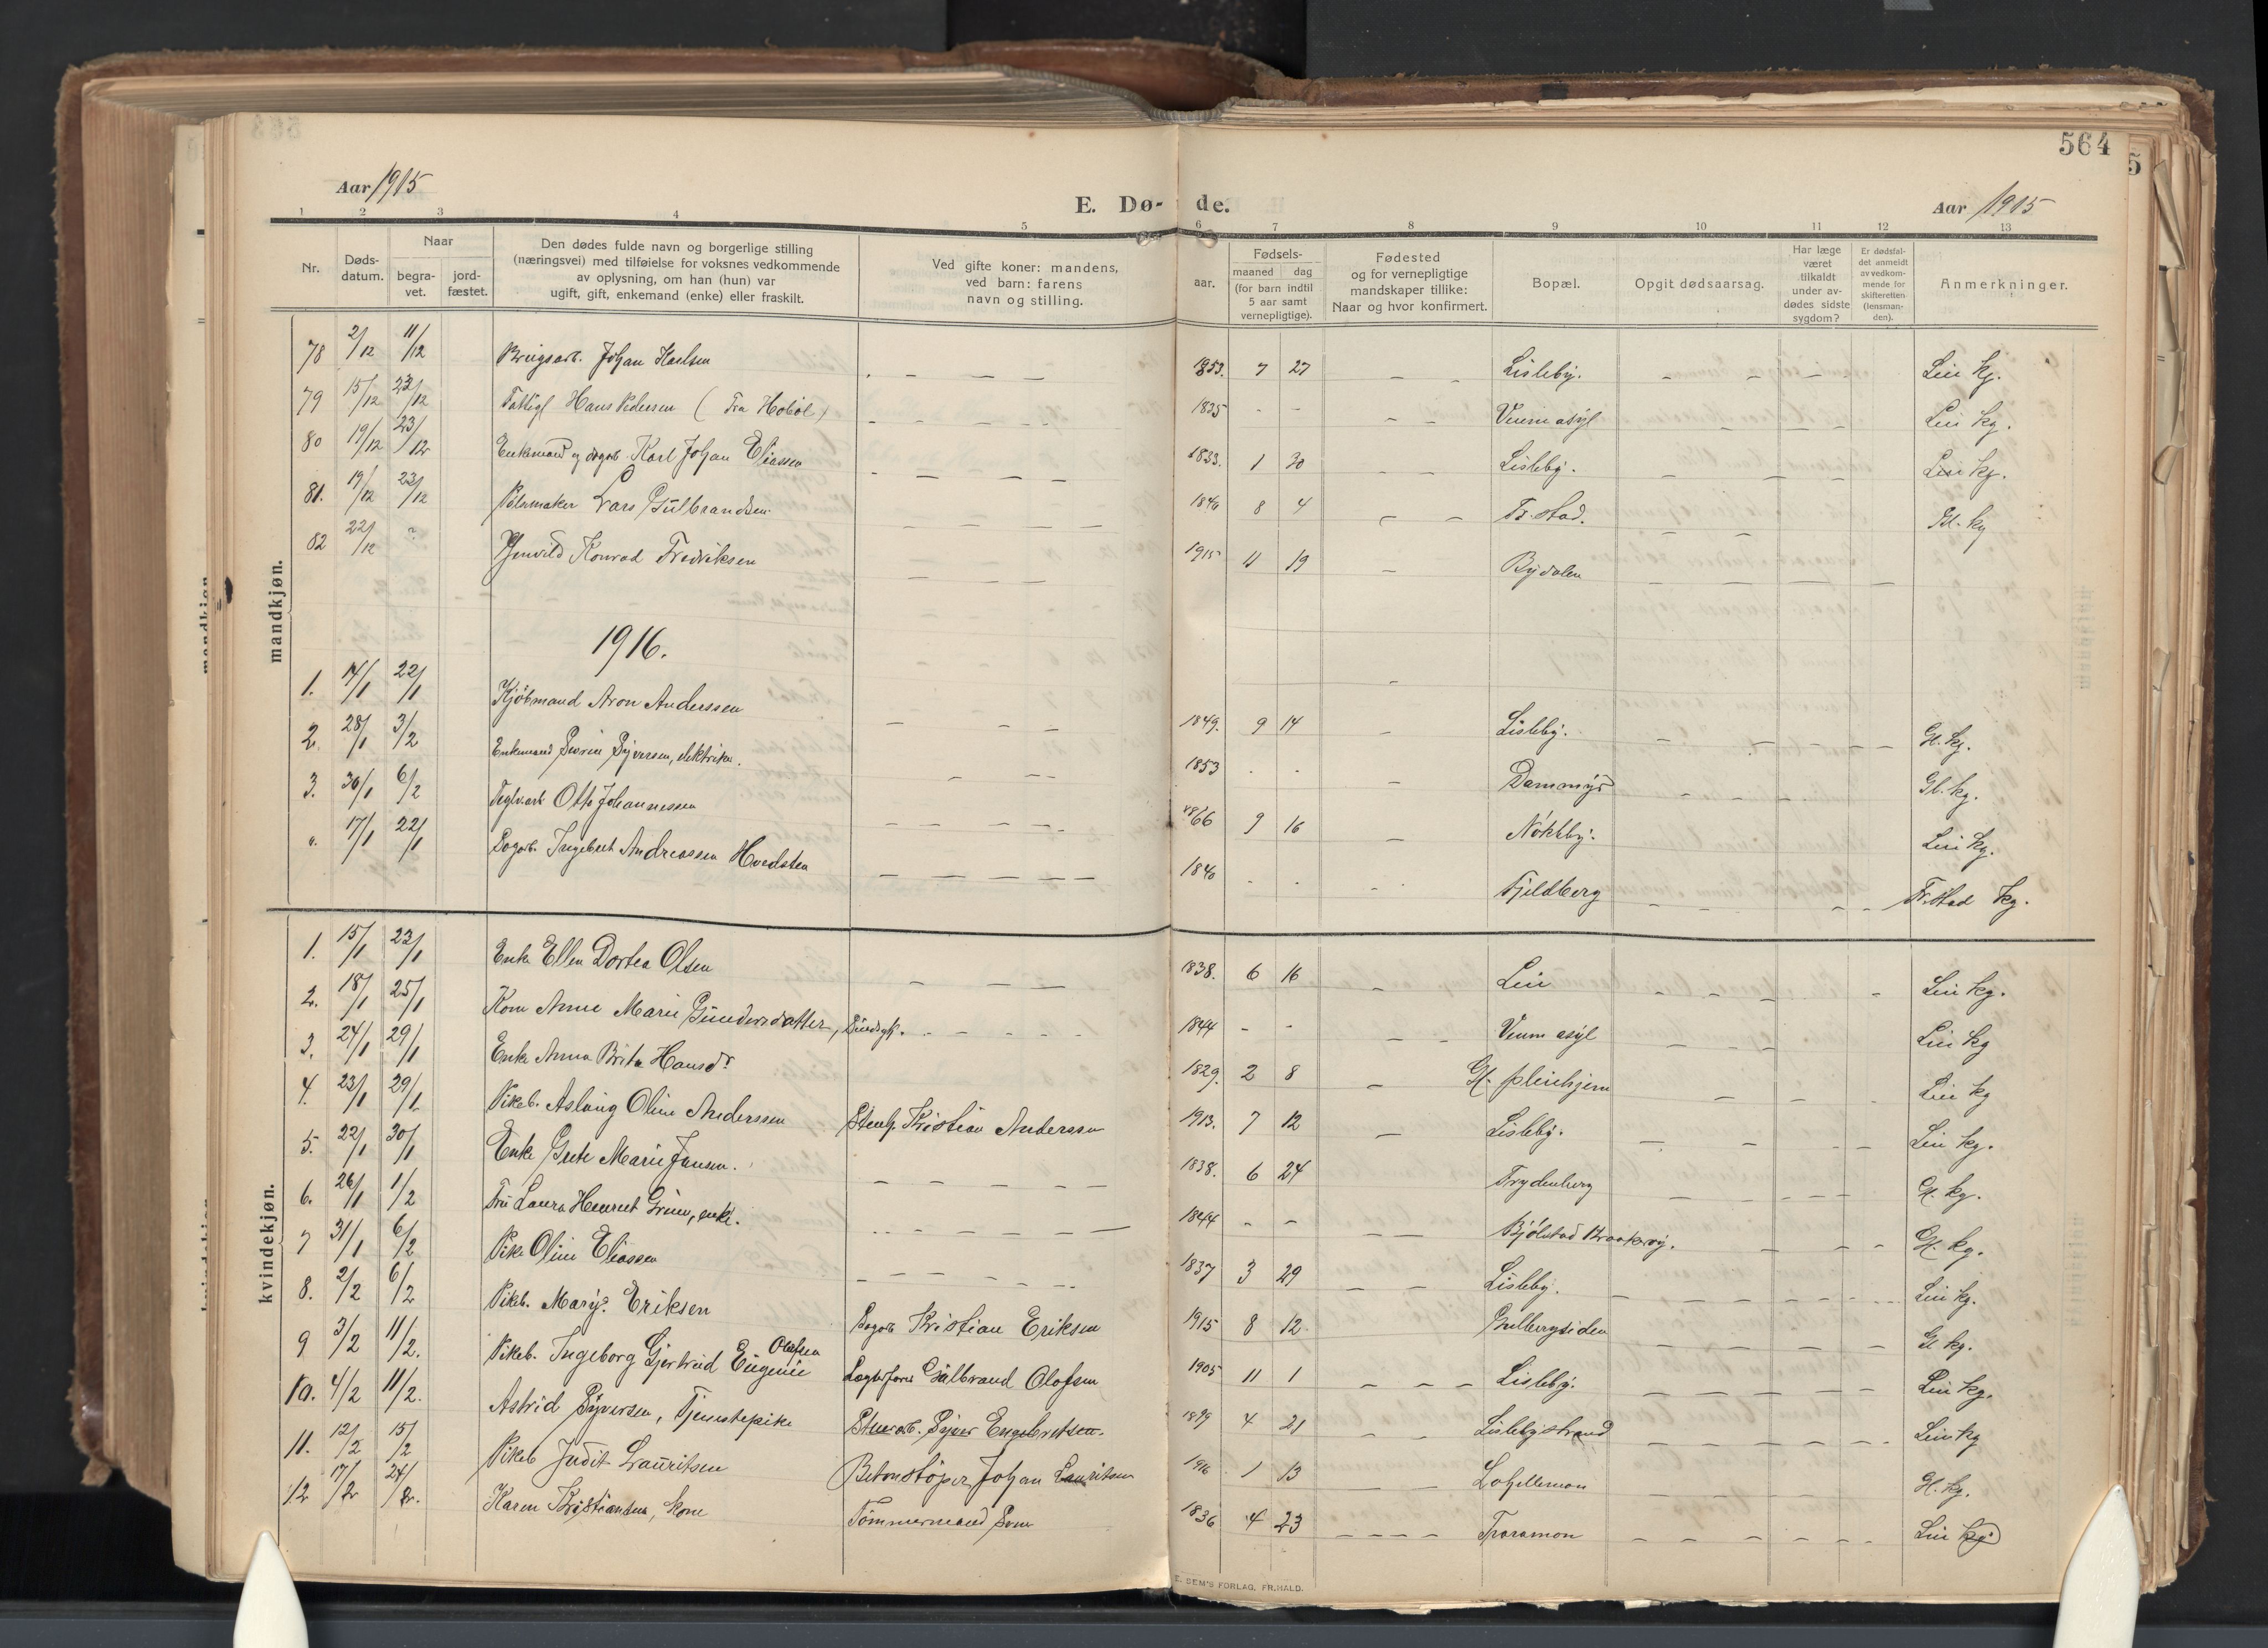 564
5
Aar 1915
E. Dø- de.
Aar 1915
1 2 3 4 5 6 7 8 9 10 11 12 13
Nr.
Døds-
datum.
Naar
begra-
vet.
jord-
fæstet.
Den dødes fulde navn og borgerlige stilling
(næringsvei) med tilføielse for voksnes vedkommende
av oplysning, om han (hun) var
ugift, gift, enkemand (enke) eller fraskilt.
Ved gifte koner: mandens,
ved barn: farens
navn og stilling.
aar.
Fødsels-
maaned dag
(for barn indtil
5 aar samt
vernepligtige).
Fødested
og for vernepligtige
mandskaper tillike:
Naar og hvor konfirmert.
Bopæl.
Opgit dødsaarsag.
Har læge
været
tilkaldt
under av-
dødes sidste
sygdom?
Er dødsfal-
det anmeldt
av vedkom-
mende for
skifteretten
(lensman-
den).
Anmerkninger.
mandkjøn.
78 2/12 11/12 Brugsarb. Johan Karlsen 1853. 7 27 Lisleby. Lein kg.
79 15/12 22/12 Fattigl Hans Pedersen (Fra Hobøl) 1835 - - Veum asyl Lein kg.
80 19/12 23/12 Enkemand og dagarb. Karl Johan Eliassen 1833. 1 30 Lisleby. Lein kg.
81. 19/12 23/12 Pølsmaker Lars Gulbrandsen 1846 8 4 Fr.stad. Gl. kg
82 22/12 ? Konrad Fredriksen 1915 11 19 Bydalen
1916.
1. 14/1 22/1 Kjøbmand Aron Anderssen 1849. 9 14 Lisleby. Gl. kg.
2. 28/1 3/2 Enkemand Severin Syversen, elektriker. 1853 - - Dammyr Gl. kg.
3. 30/1 6/2 Teglv.arb Otto Johannessen 1866 9 16 Nøkleby. Lein kg.
17/1 22/1 Dagarb. Ingebret Andreassen Hvedsten 1840 - - Fjeldberg Fr.stad kg.
kvindekjøn.
1. 15/1 23/1 Enke Ellen Dortea Olsen 1838. 6 16 Lein Lein kg.
2. 18/1 25/1 Kone Anne Marie Gundersdatter, Sindsyk. 1844 - - Veum asyl Lein kg
3. 24/1 29/1 Enke Anna Brita Hansdr 1829. 2 8 Gl. pleiehjem Lein kg
4. 23/1 29/1 Pikeb. Aslaug Oline Anderssen Stenh. Kristian Anderssen 1913. 7 12 Lisleby. Lein kg.
5. 22/1 30/1 Enke Grete Marie Jansen. 1838. 6 24 Frydenberg Gl. kg.
6. 26/1 1/2 Fru Laura Henriet Grim, enke. 1844 - - Bjølstad Gl. kg.
7 31/1 6/2 Pike Oline Eliassen 1837 3 29 Lisleby. Lein kg.
8. 2/2 6/2 Pikeb. Mary. Eriksen Dagarb Kristian Eriksen 1915 8 12 Gulbergsiden Gl kg.
9 3/2 11/2. Pikeb. Ingeborg Gjertrud Eugenie Olafsen Lagterfører Gulbrand Olafsen 1905 11 1 Lisleby. Lein kg.
10. 4/2 11/2. Astrid Syversen, Tjenestepike Stenarb. Syver Engebretsen. 1899 4 21 Lislebystrand Lein kg
11. 12/2 15/2 Pikeb Judit Lauritsen Betonstøper Johan Lauritsen 1916 1 13 Lahellemoen Gl. kg.
12 17/2 24/2. Karen Kristiansen, kone Tømmermand Sven 1836 4 23 Traramoen Lein kg
E. SEM'S FORLAG, FR.HALD.